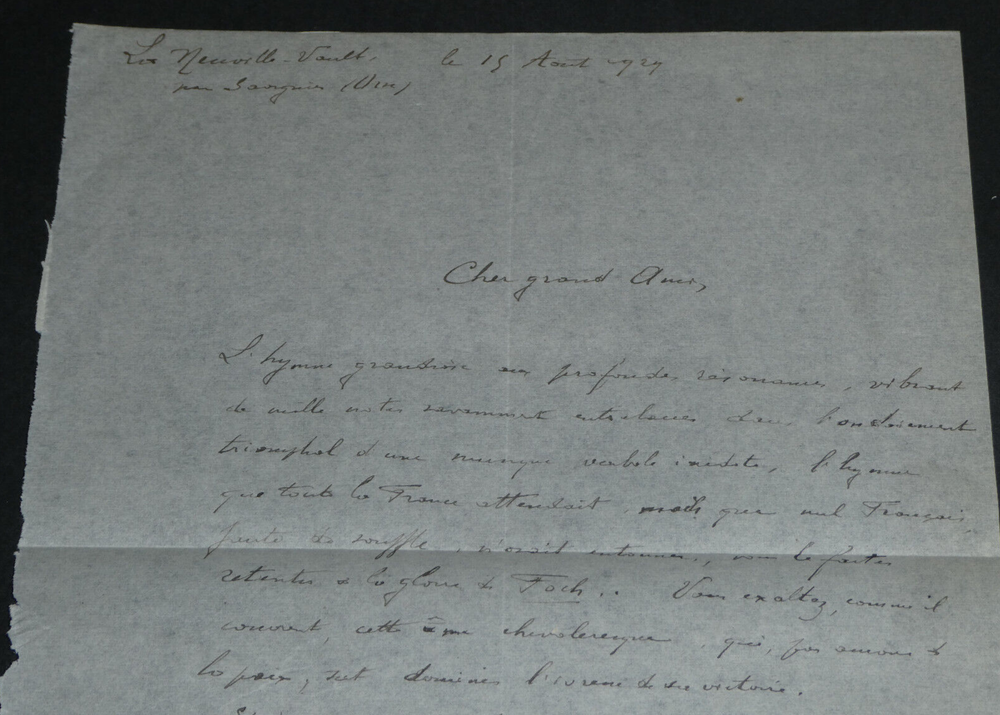 La Neuville-Vault, le 15 Août 1929
par Savignies (Oise)
Cher grand Ami,
L'hymne grandiose aux profondes résonances, vibrant
de mille notes savamment entrelacées dans l'ondoiement
triomphal d'une musique verbale inédite, l'hymne
que toute la France attendait, mais que nul Français,
faute de souffle, n'avait entonné, vous le faites
retentir à la gloire de Foch.. Vous exaltez, comme il
convient, cette âme chevaleresque, qui, par amour de
la paix, sut dominer l'ivresse de sa victoire.